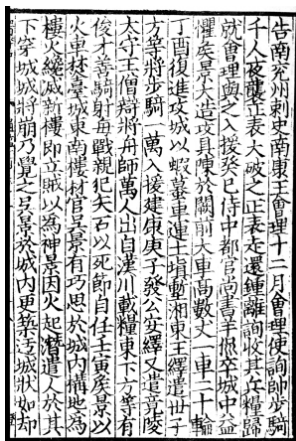 告南兗州刺史南康王會理十二月會理使詢帥步騎
千人夜襲正表大破之正表走還鍾離詢收其兵糧歸
就會理與之入援癸巳侍中都官尚書羊侃卒城中益
懼侯景大造攻具陳於闕前大車高數丈一車二十輪
丁酉復進攻城以蝦蟇車運土填塹湘東王繹遣世子
方等將步騎一萬入援建康庚子發公安繹又遣竟陵
太守王僧辯將舟師萬人出自漢川載糧東下方等有
俊才善騎射每戰親犯矢石以死節自任壬寅侯景以
火車焚臺城東南樓材官吳景有巧思於城內構地為
樓火纔滅新樓即立賊以為神景因火起潛遣人於其
下穿城城將崩乃覺之吳景於城內更築迂城狀如却